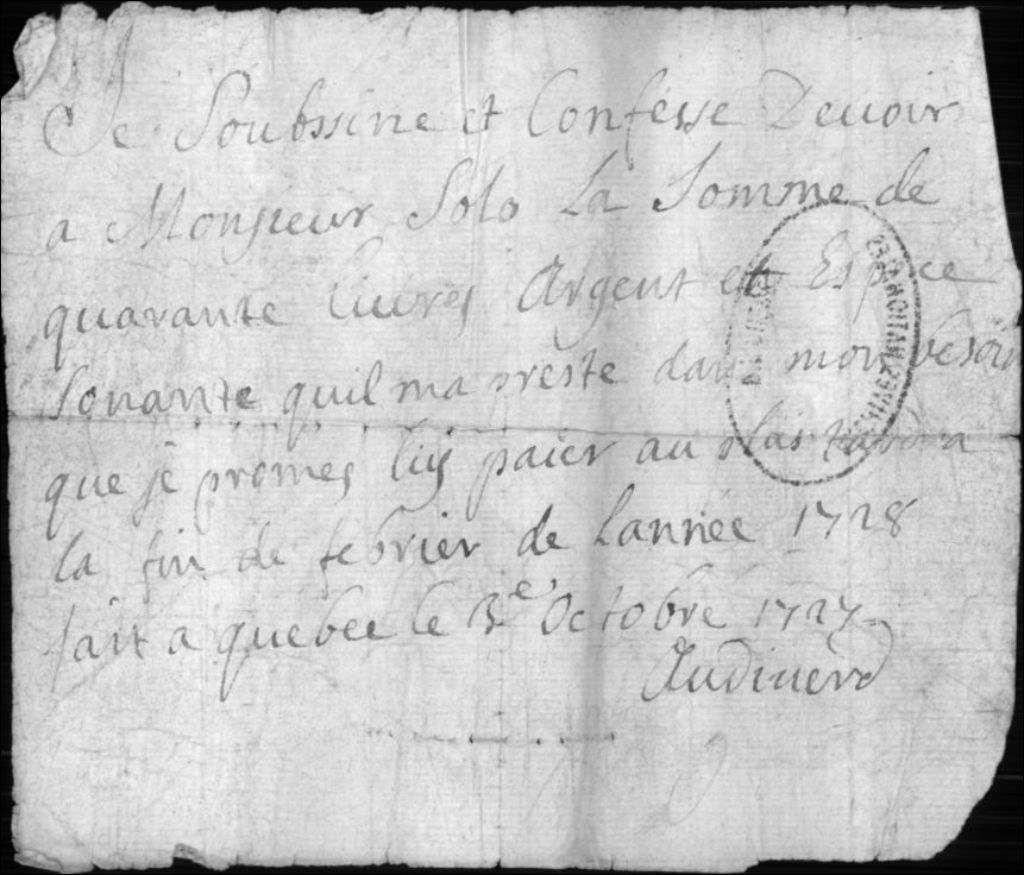 Je Soubssine et Confesse Devoir
a Monsieur Solo La Somme de
quarante livres Argent en Espece
Sonante quil ma preste dans mon besoin
que je promes luy paier au plus tard a
la fin de febrier de Lannée 1728
fait a quebec le 3e Octobre 1727